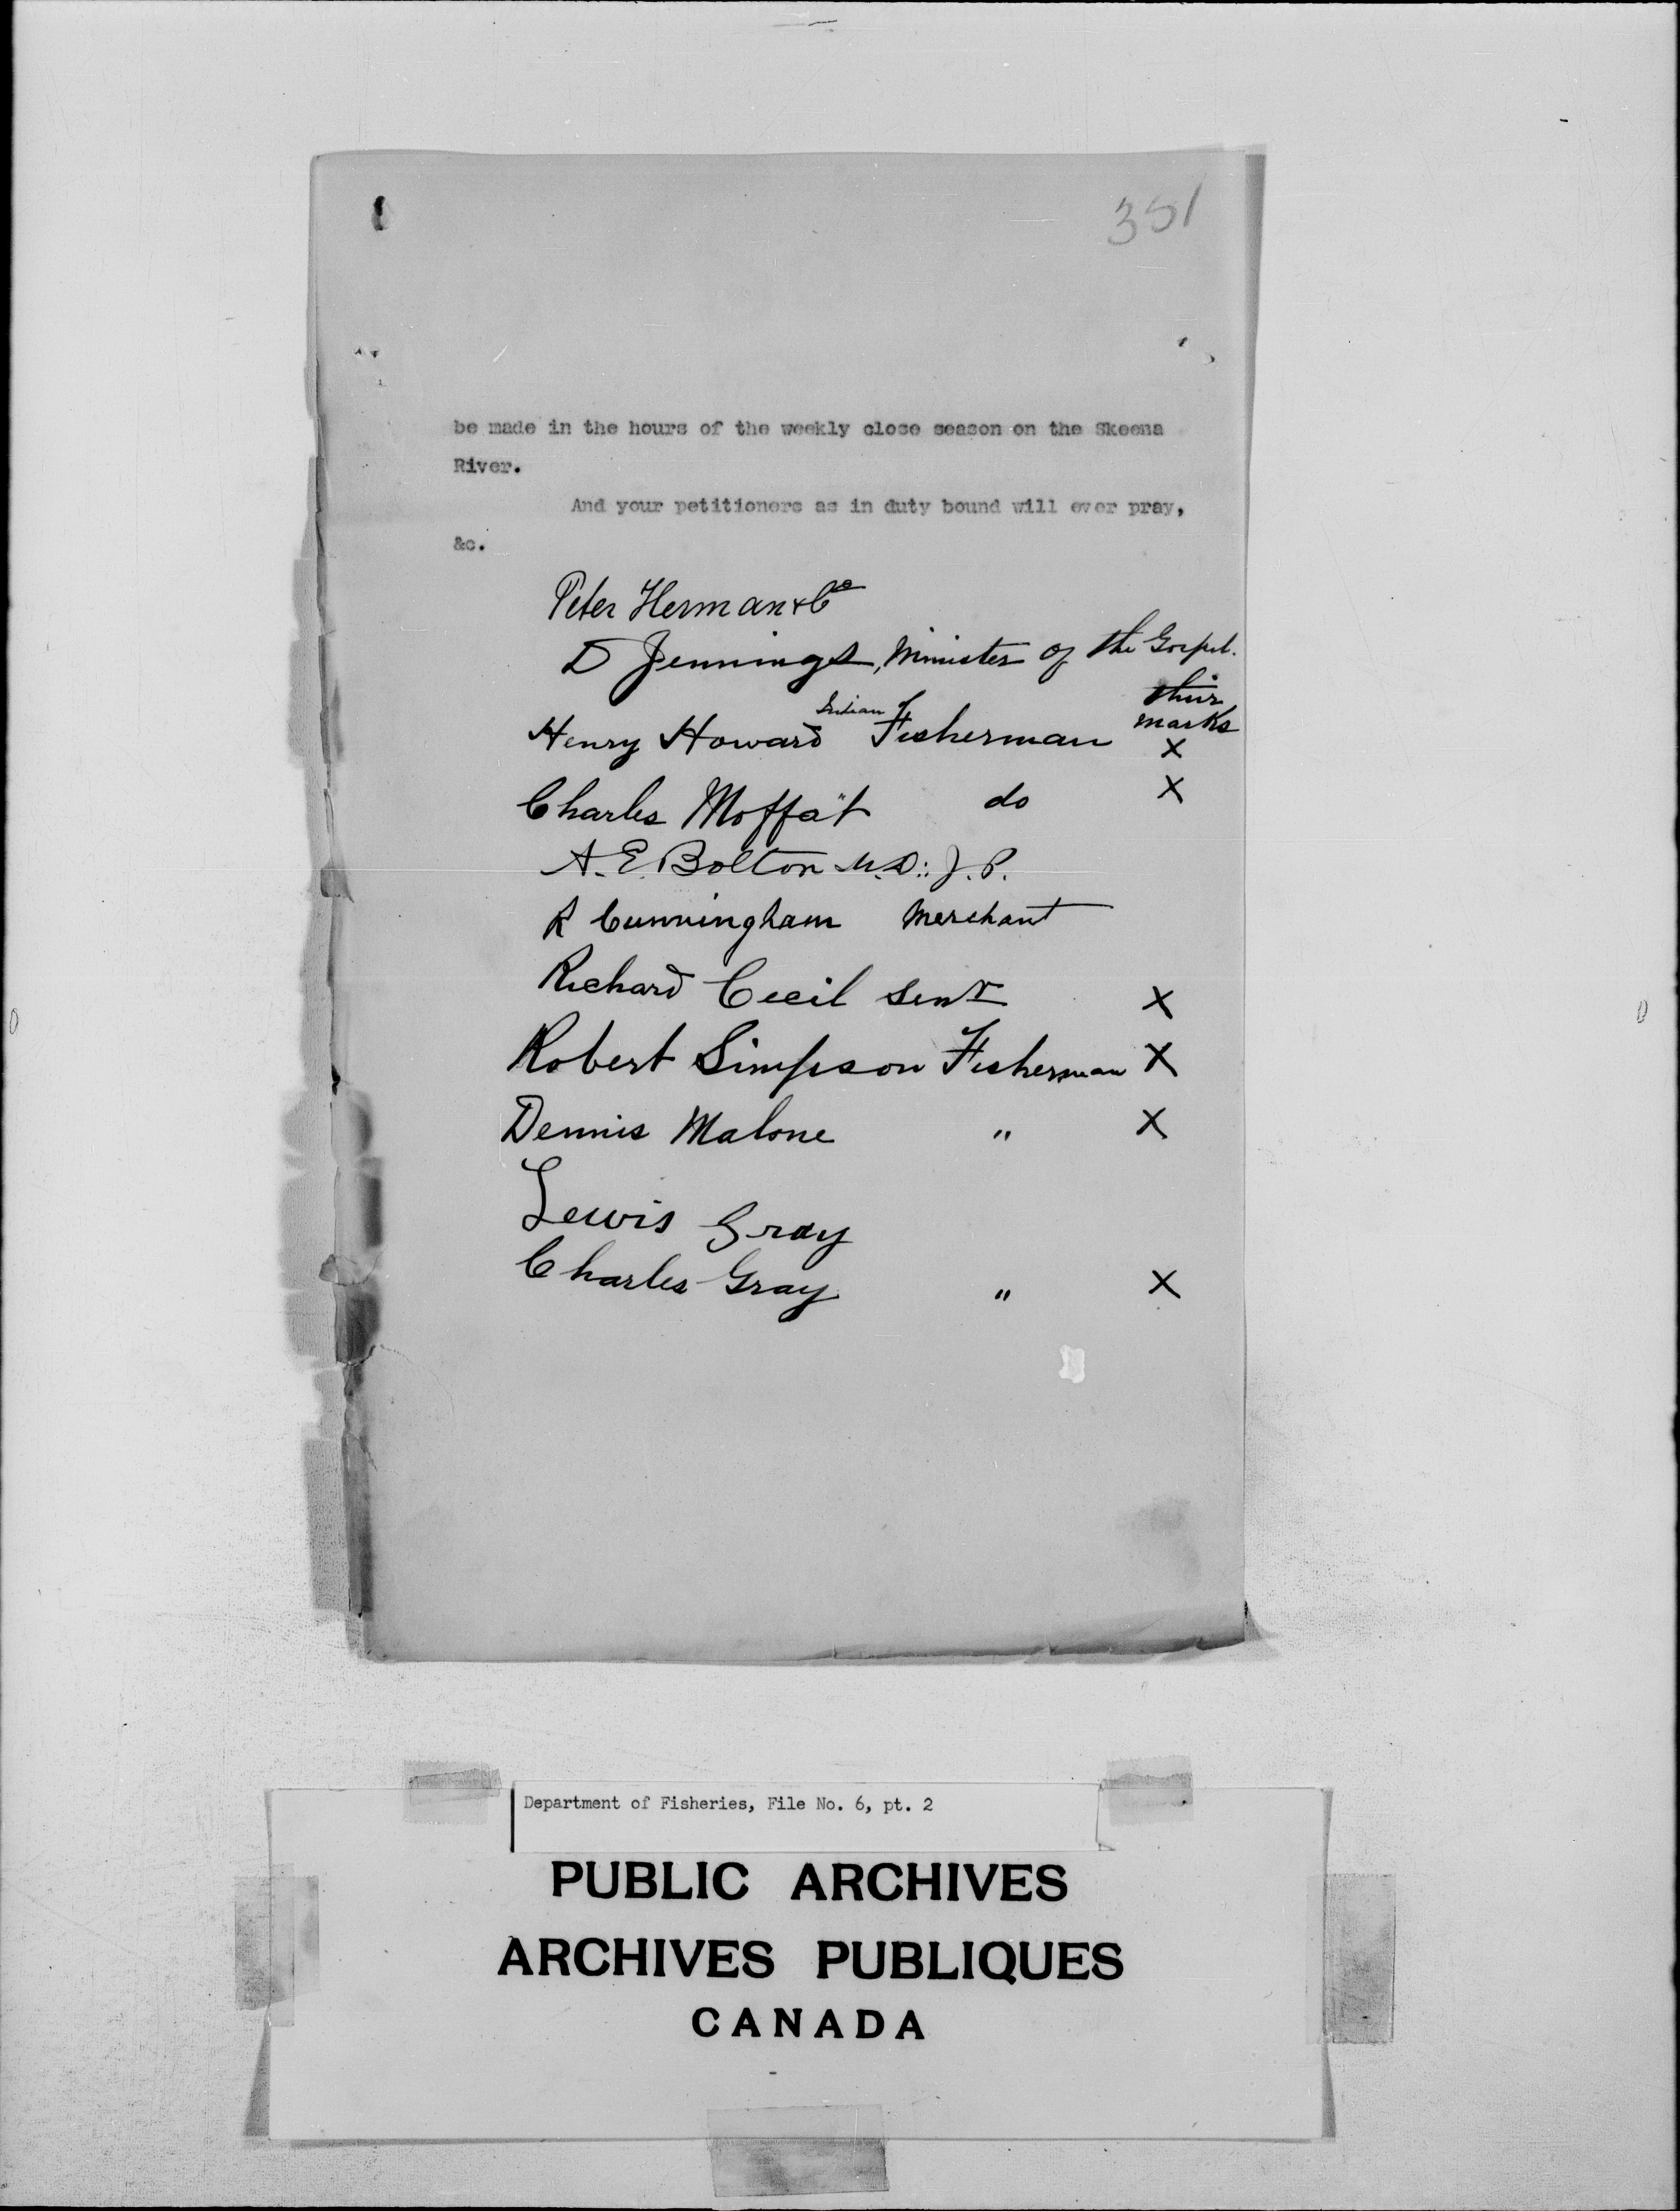 351
be made in the hours of the weekly close season on the Skeena
River.
And your petitioners as in duty bound will ever pray,
&c.
Peter Herman & Co
D Jennings, Minister of the Gospel.
their
marks
Henry Howard Indian Fisherman X
Charles Moffat do X
A. E. Bolton M.D.: J.P.
R Cunningham Merchant
Richard Cecil Senr X
Robert Simpson Fisherman X
Dennis Malone " X
Lewis Gray
Charles Gray " X
Department of Fisheries, File No. 6, pt. 2
PUBLIC ARCHIVES
ARCHIVES PUBLIQUES
CANADA